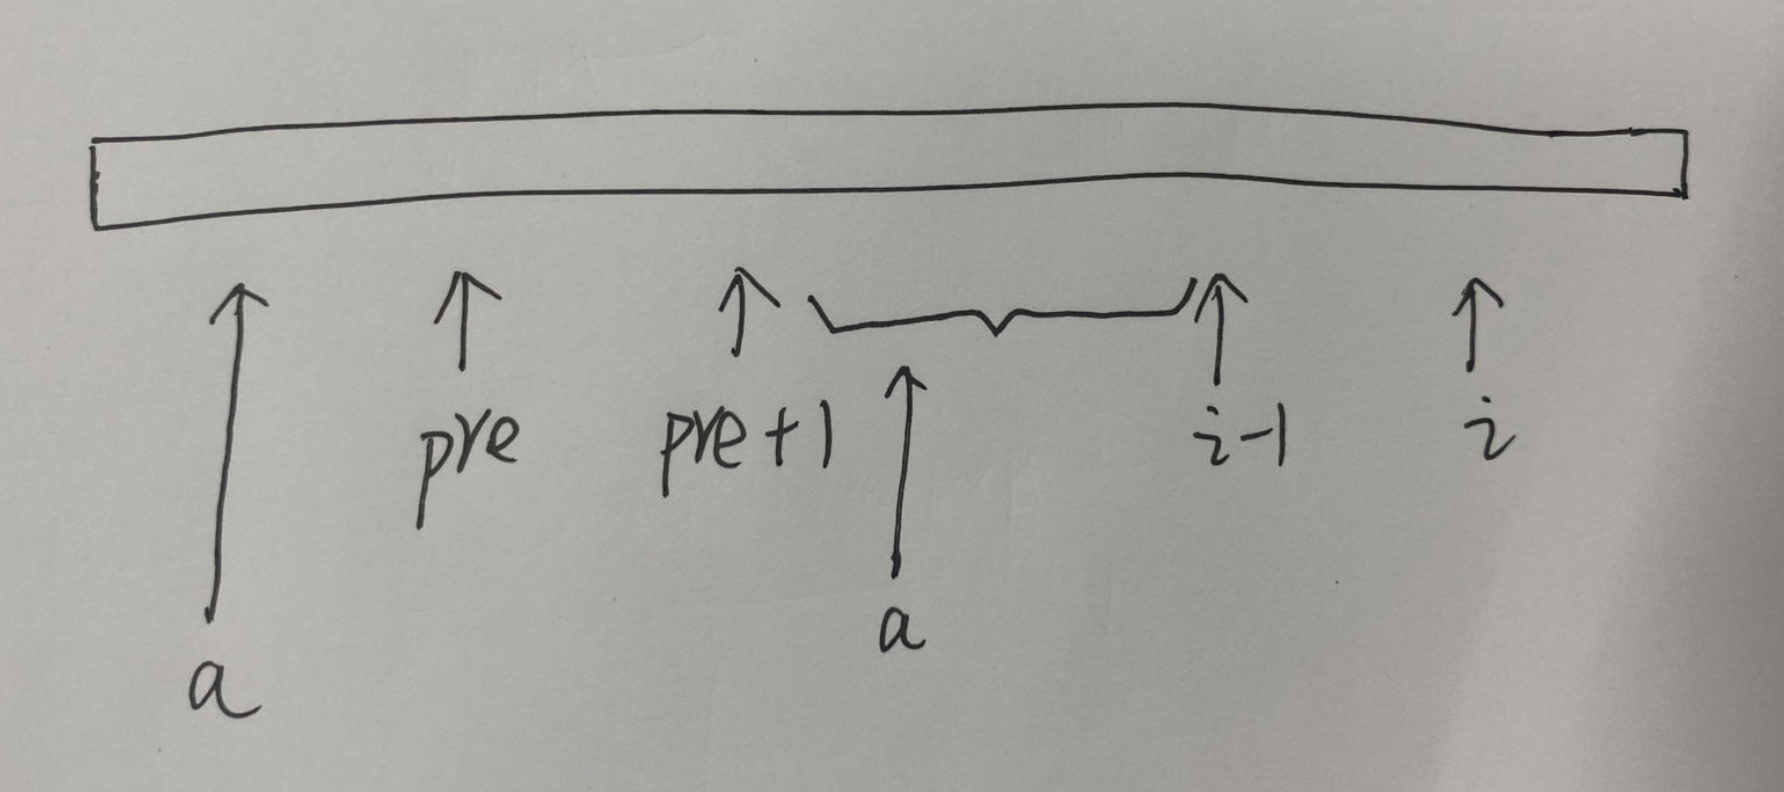 pre pre+1 i-1 i
a
a